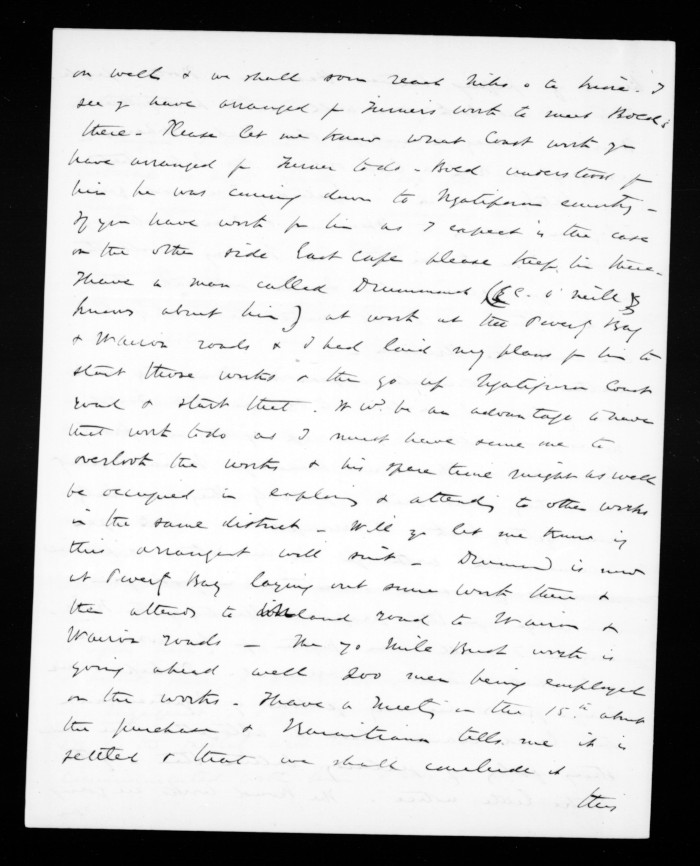 on well & we shall soon reach
see yr have arranged for Turner's work to meet Bold's
there - Please let me know what Coast work yr
have arranged for Turner to do - Bold understood for
him he was coming down to Ngatiporou country -
If you have work for him as I expect is the case
on the other side East Cape please keep him there -
I have a man called Drummond ( O'Neill
knows about him) at work at the Poverty Bay
& Wairoa roads & I had laid my plans for him to
start those works & then go up Ngatiporou Coast
road & start that. It wd. be an advantage to have
that work to do as I must have some one to
overlook the works & his spare time might as well
be occupied in exploring & attending to other works
in the same district - Will yo let me know if
this arrangemt will suit - Drummond is now
at Poverty Bay laying out some work there &
then attends to inland road to Wairoa &
Wairoa roads - The 70 Mile Bush work is
going ahead well 200 men being employed
on the works. I have a Meeting on the 15th about
the purchase & Karaitiana tells me it is
settled & that we shall conclude it
this